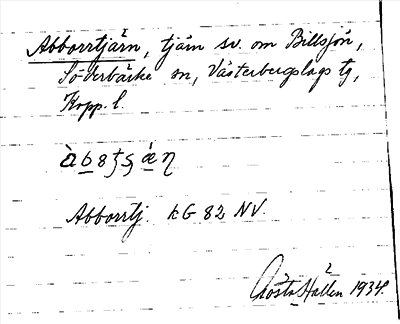 Abborrtjärn, tjärn sv. om Billsjön,
Söderbärke sn, Västerbergslags tg,
Kopp. l.
Abborrtj. kG 82 NV.
Gösta Hallen 1934.